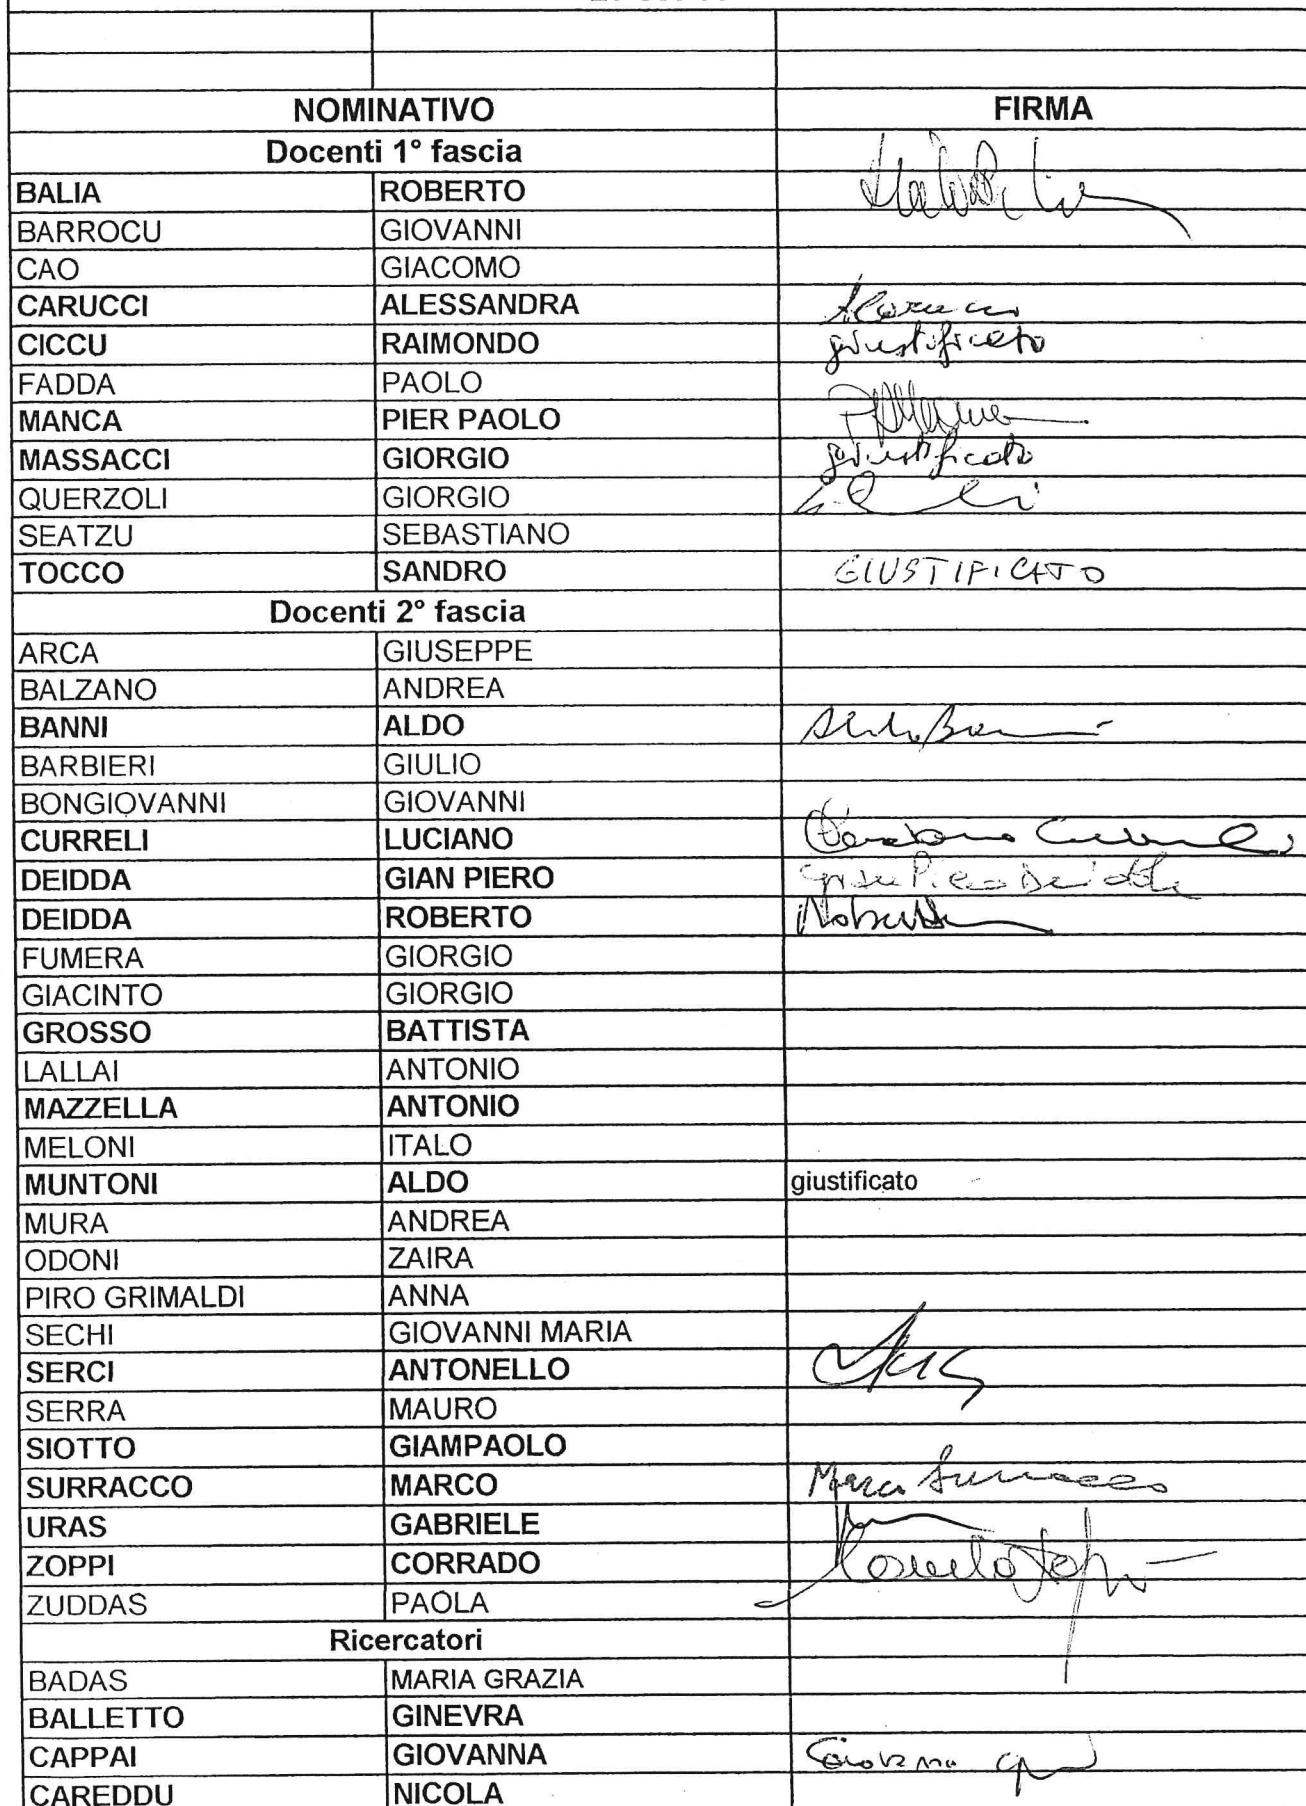 NOMINATIVO FIRMA
Docenti 1° fascia
BALIA ROBERTO
BARROCU GIOVANNI
CAO GIACOMO
CARUCCI ALESSANDRA
CICCU RAIMONDO giustificato
FADDA PAOLO
MANCA PIER PAOLO
MASSACCI GIORGIO giustificato
QUERZOLI GIORGIO
SEATZU SEBASTIANO
TOCCO SANDRO GIUSTIFICATO
Docenti 2° fascia
ARCA GIUSEPPE
BALZANO ANDREA
BANNI ALDO
BARBIERI GIULIO
BONGIOVANNI GIOVANNI
CURRELI LUCIANO
DEIDDA GIAN PIERO Gian Piero Deidda
DEIDDA ROBERTO
FUMERA GIORGIO
GIACINTO GIORGIO
GROSSO BATTISTA
LALLAI ANTONIO
MAZZELLA ANTONIO
MELONI ITALO
MUNTONI ALDO giustificato
MURA ANDREA
ODONI ZAIRA
PIRO GRIMALDI ANNA
SECHI GIOVANNI MARIA
SERCI ANTONELLO
SERRA MAURO
SIOTTO GIAMPAOLO
SURRACCO MARCO Marco Surracco
URAS GABRIELE
ZOPPI CORRADO
ZUDDAS PAOLA
Ricercatori
BADAS MARIA GRAZIA
BALLETTO GINEVRA
CAPPAI GIOVANNA Giovanna
CAREDDU NICOLA